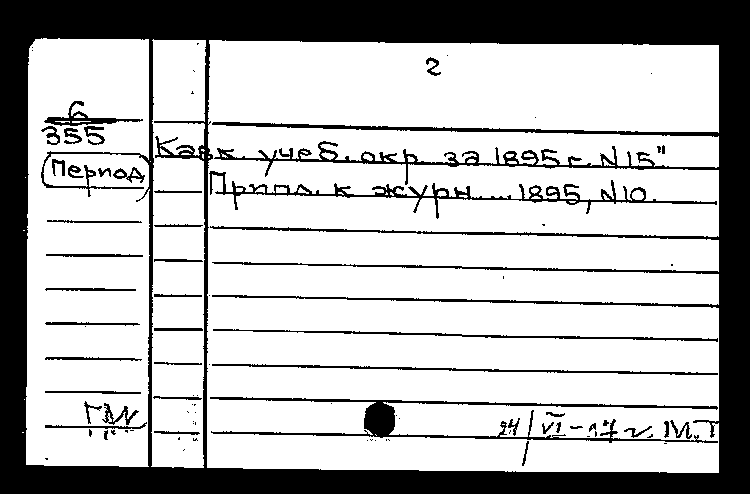 2
6
355
Период
Кавк. учеб. окр. за 1895 г. N 15"
Прилл. к журн... 1895, N 10.
24/VI-17 г. М.Т